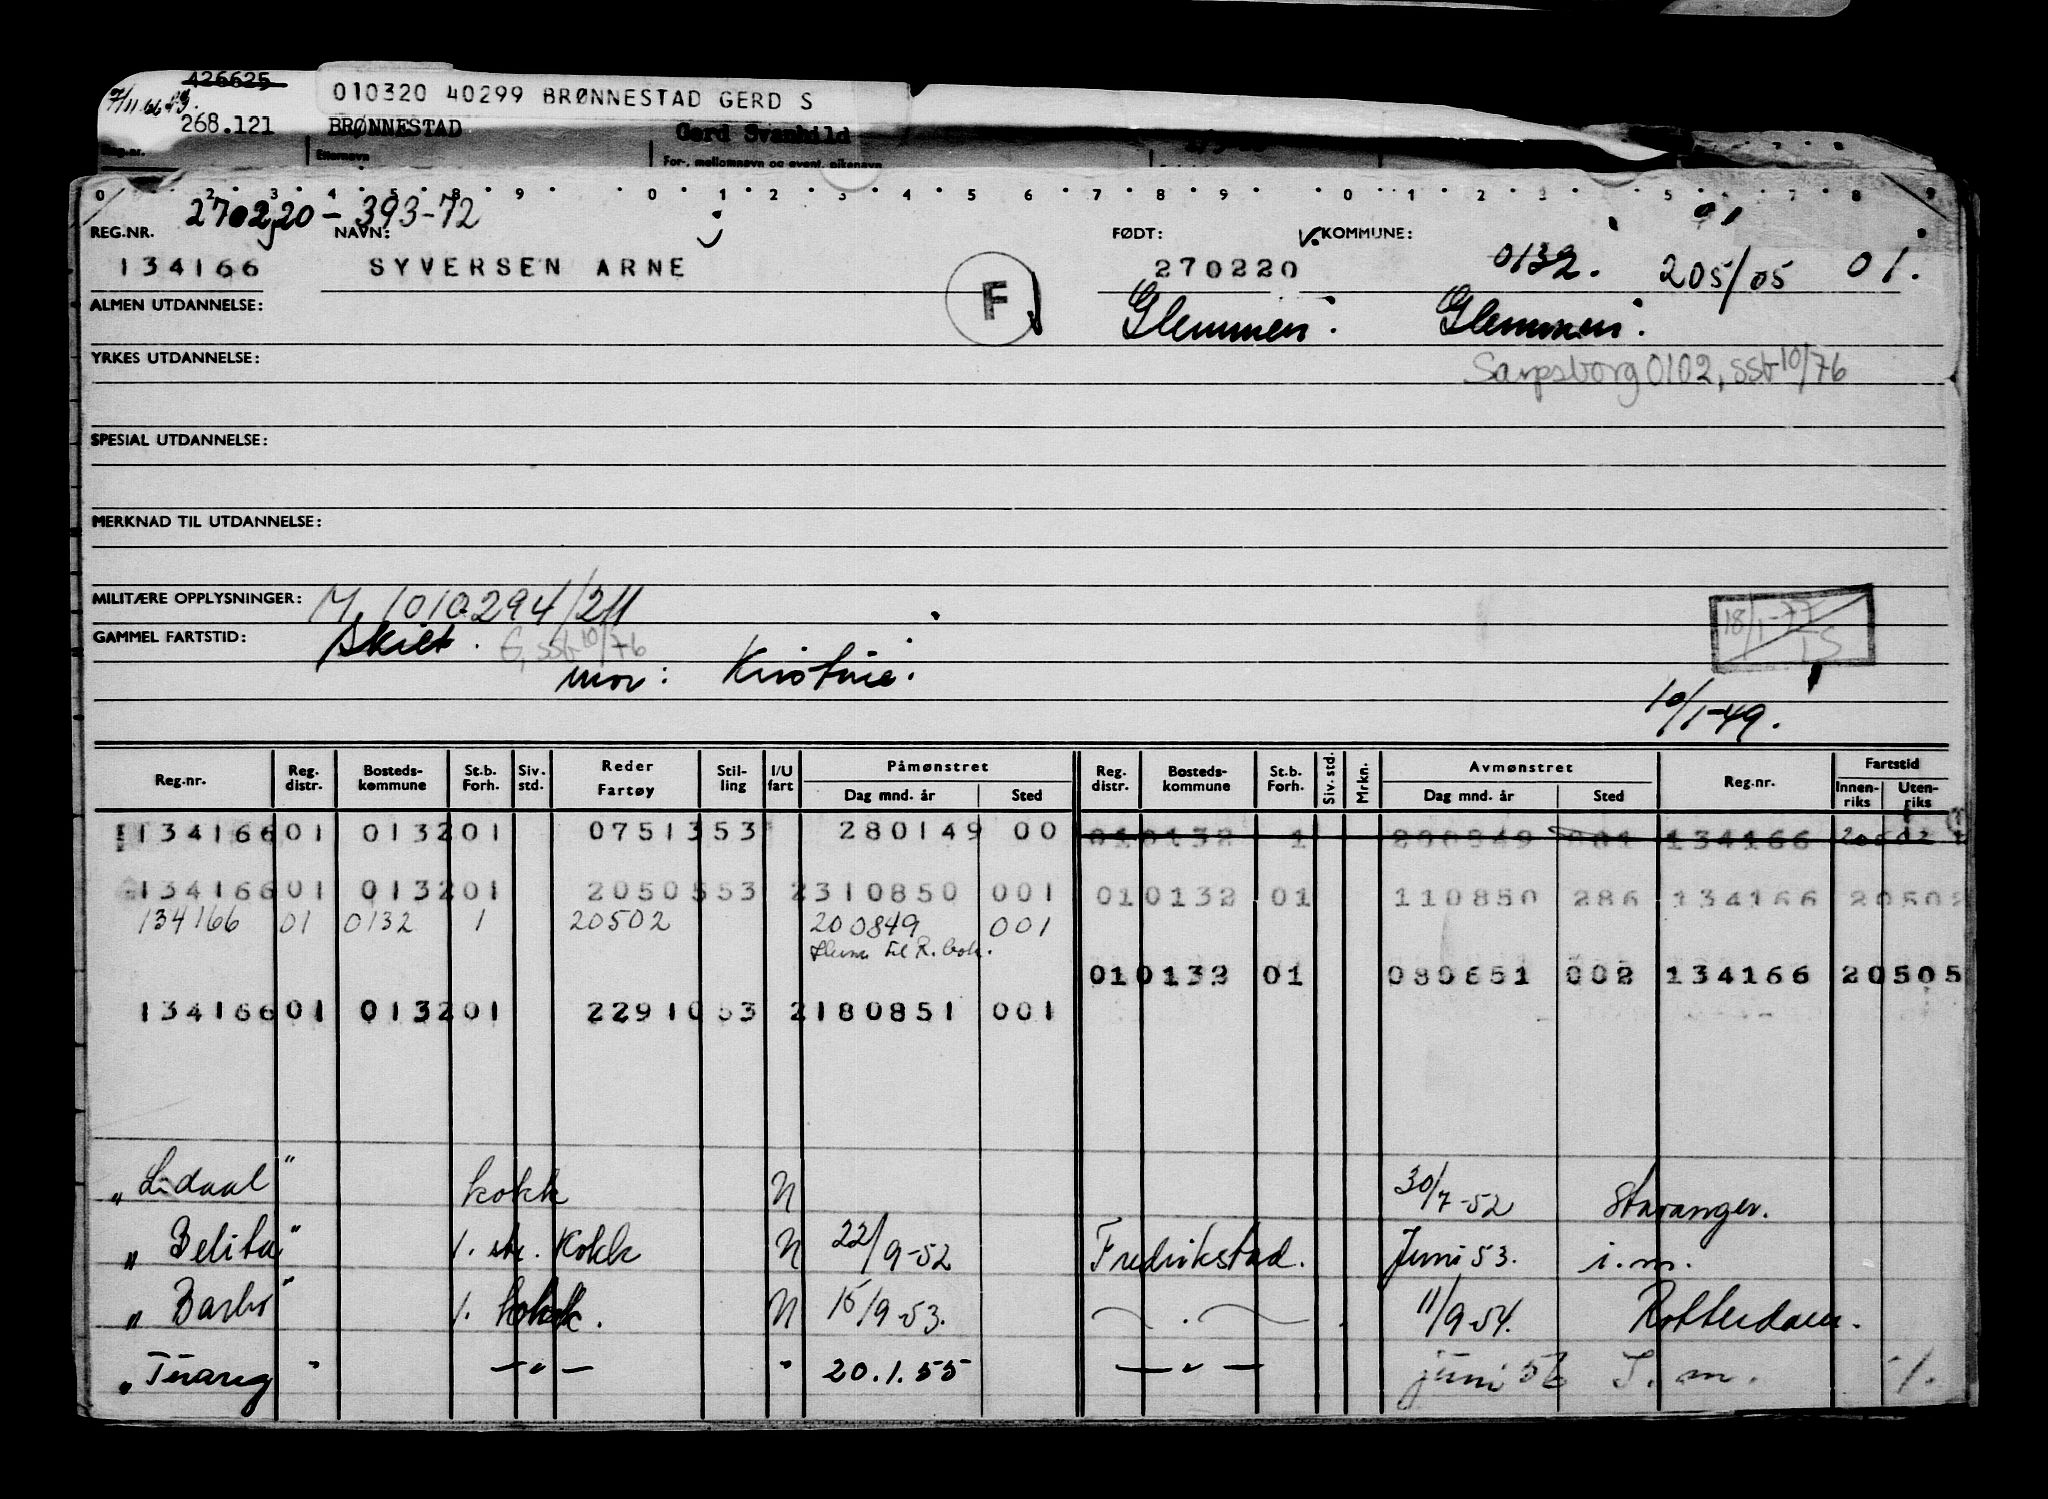 426625
7/11 66
010320 40299 BRØNNESTAD GERD S
268.121 BRØNNESTAD Gerd Svanhild
Reg.nr. Etternavn For-, mellomnavn og event. pikenavn
270220 - 393-72
REG.NR. NAVN: FØDT: KOMMUNE:
134166 SYVERSEN ARNE F 270220 0132. 205/05 01.
ALMEN UTDANNELSE: Glemmen. Glemmen.
YRKES UTDANNELSE: Sarpsborg 0102, sst 10/76
SPESIAL UTDANNELSE:
MERKNAD TIL UTDANNELSE:
MILITÆRE OPPLYSNINGER: M. 1010294/211
18/1-77 TS
GAMMEL FARTSTID: Skilt. G, sst 10/76
mor: Kristine.
10/1-49.
Reg.nr. Reg. distr. Bosteds-kommune St.b. Forh. Siv. std. Reder Fartøy Stil-ling I/U fart Påmønstret Dag mnd. år Sted Reg. distr. Bosteds-kommune St.b. Forh. Siv. std. Mrkn. Avmønstret Dag mnd. år Sted Reg.nr. Fartstid Innen-riks Uten-riks
134166 01 0132 01 07513 53 280149 00 01 0132 1 200849 001 134166 20502
134166 01 0132 01 20505 53 2 310850 001 01 0132 01 110850 286 134166 20502
134166 01 0132 1 20502 200849 001
til R. bok.
01 0132 01 080651 002 134166 20505
134166 01 0132 01 22910 53 2 180851 001
"Lidaal" kokk N 30/7-52 Stavanger.
"Belita" 1. str. kokk N 22/9-52 Fredrikstad. Juni 53. i.m.
"Barbo" 1. kokk. N 15/9-53. — . — 11/9-54. Rotterdam.
"Tuareg" — " — " 20.1.55 — " — juni 56 I. m.